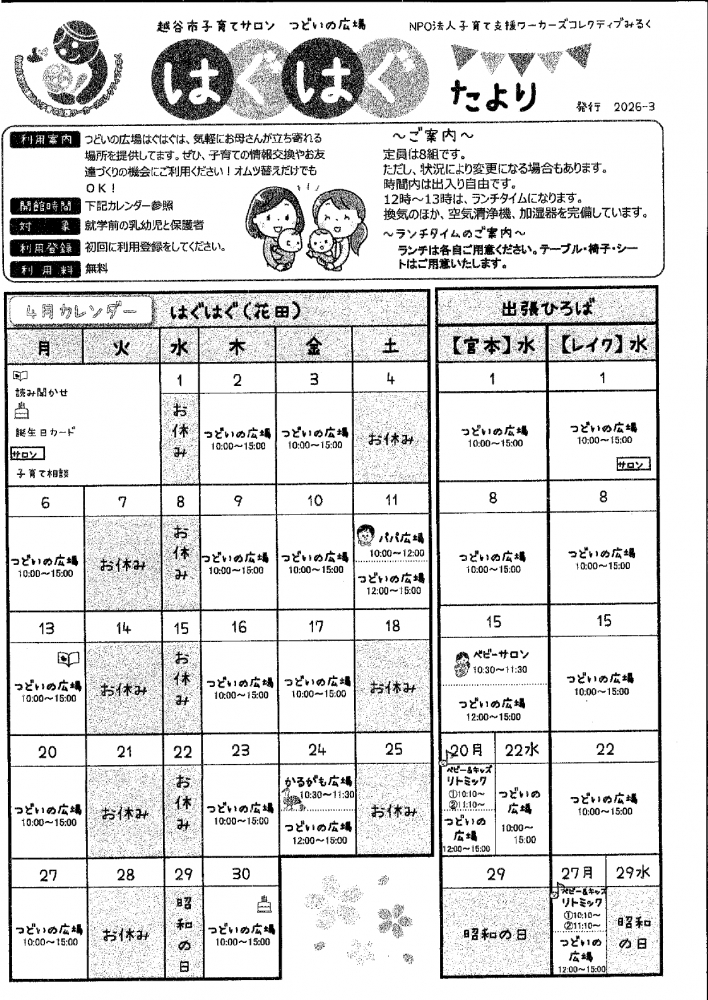 越谷市子育てサロン つどいの広場
NPO法人子育て支援ワーカーズコレクティブみるく
はぐはぐ
たより
発行 2026-3
利用案内
つどいの広場はぐはぐは、気軽にお母さんが立ち寄れる
場所を提供してます。ぜひ、子育ての情報交換やお友
達づくりの機会にご利用ください!オムツ替えだけでも
OK!
開館時間 下記カレンダー参照
対象 就学前の乳幼児と保護者
利用登録 初回に利用登録をしてください。
利用料 無料
~ご案内~
定員は8組です。
ただし、状況により変更になる場合もあります。
時間内は出入り自由です。
12時~13時は、ランチタイムになります。
換気のほか、空気清浄機、加湿器を完備しています。
~ランチタイムのご案内~
ランチは各自ご用意ください。テーブル・椅子・シー
トはご用意いたします。
4月カレンダー はぐはぐ(花田)
月 火 水 木 金 土
読み聞かせ
誕生日カード
サロン
子育て相談
1 2 3 4
お休み
つどいの広場 つどいの広場 お休み
10:00~15:00 10:00~15:00
6 7 8 9 10 11
つどいの広場 お休み お休み つどいの広場 つどいの広場
10:00~15:00 10:00~15:00 10:00~15:00
パパ広場
10:00~12:00
つどいの広場
12:00~15:00
13 14 15 16 17 18
つどいの広場 お休み お休み つどいの広場 つどいの広場 お休み
10:00~15:00 10:00~15:00 10:00~15:00
20 21 22 23 24 25
つどいの広場 お休み お休み つどいの広場
10:00~15:00 10:00~15:00
かるがも広場
10:30~11:30
つどいの広場
12:00~15:00
お休み
27 28 29 30
つどいの広場 お休み 昭和の日 つどいの広場
10:00~15:00 10:00~15:00
出張ひろば
【宮本】水 【レイク】水
1 1
つどいの広場 つどいの広場
10:00~15:00 10:00~15:00
サロン
8 8
つどいの広場 つどいの広場
10:00~15:00 10:00~15:00
15 15
ベビーサロン
10:30~11:30
つどいの広場
12:00~15:00
つどいの広場
10:00~15:00
20月 22水 22
ベビー&キッズ
リトミック
①10:10~
②11:10~
つどいの
広場
12:00~15:00
つどいの
広場
10:00~
15:00
つどいの広場
10:00~15:00
29 27月 29水
昭和の日
ベビー&キッズ
リトミック
①10:10~
②11:10~
つどいの
広場
12:00~15:00
昭和
の日